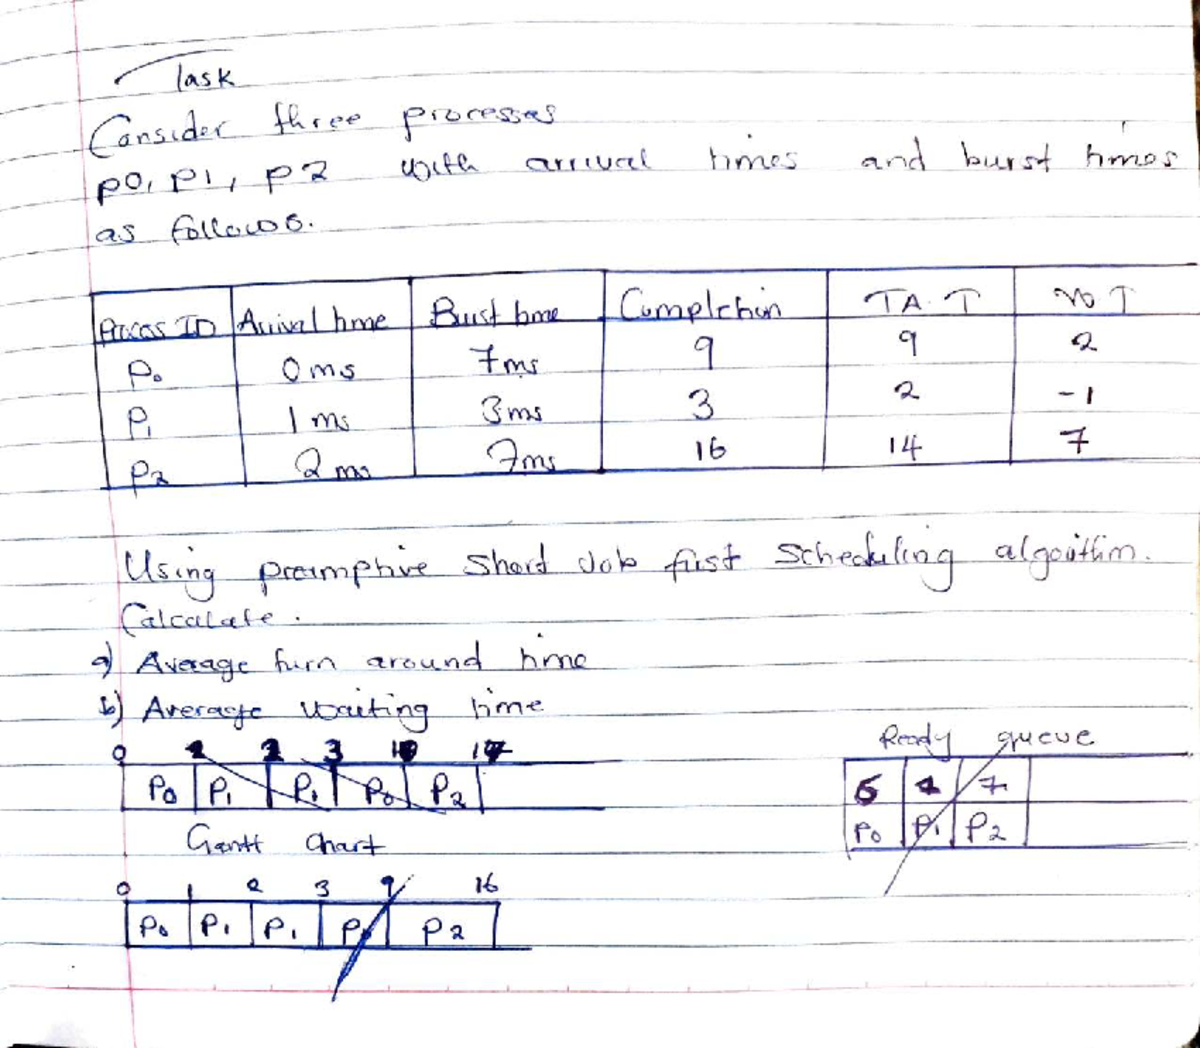 Task
Consider three processes
p0, p1, p2 with arrival times and burst times
as follows.
Process ID Arrival time Burst time Completion TA.T W T
P0 0ms 7ms 9 9 2
P1 1 ms 3ms 3 2 -1
P2 2 ms 7ms 16 14 7
Using preemptive Short Job first Scheduling algorithm.
Calculate.
a) Average turn around time
b) Average waiting time
0 1 2 3 10 17
P0 P1 P1 P0 P2
Gantt Chart
Ready queue
6 7
P0 P1 P2
0 1 2 3 9 16
P0 P1 P1 P0 P2